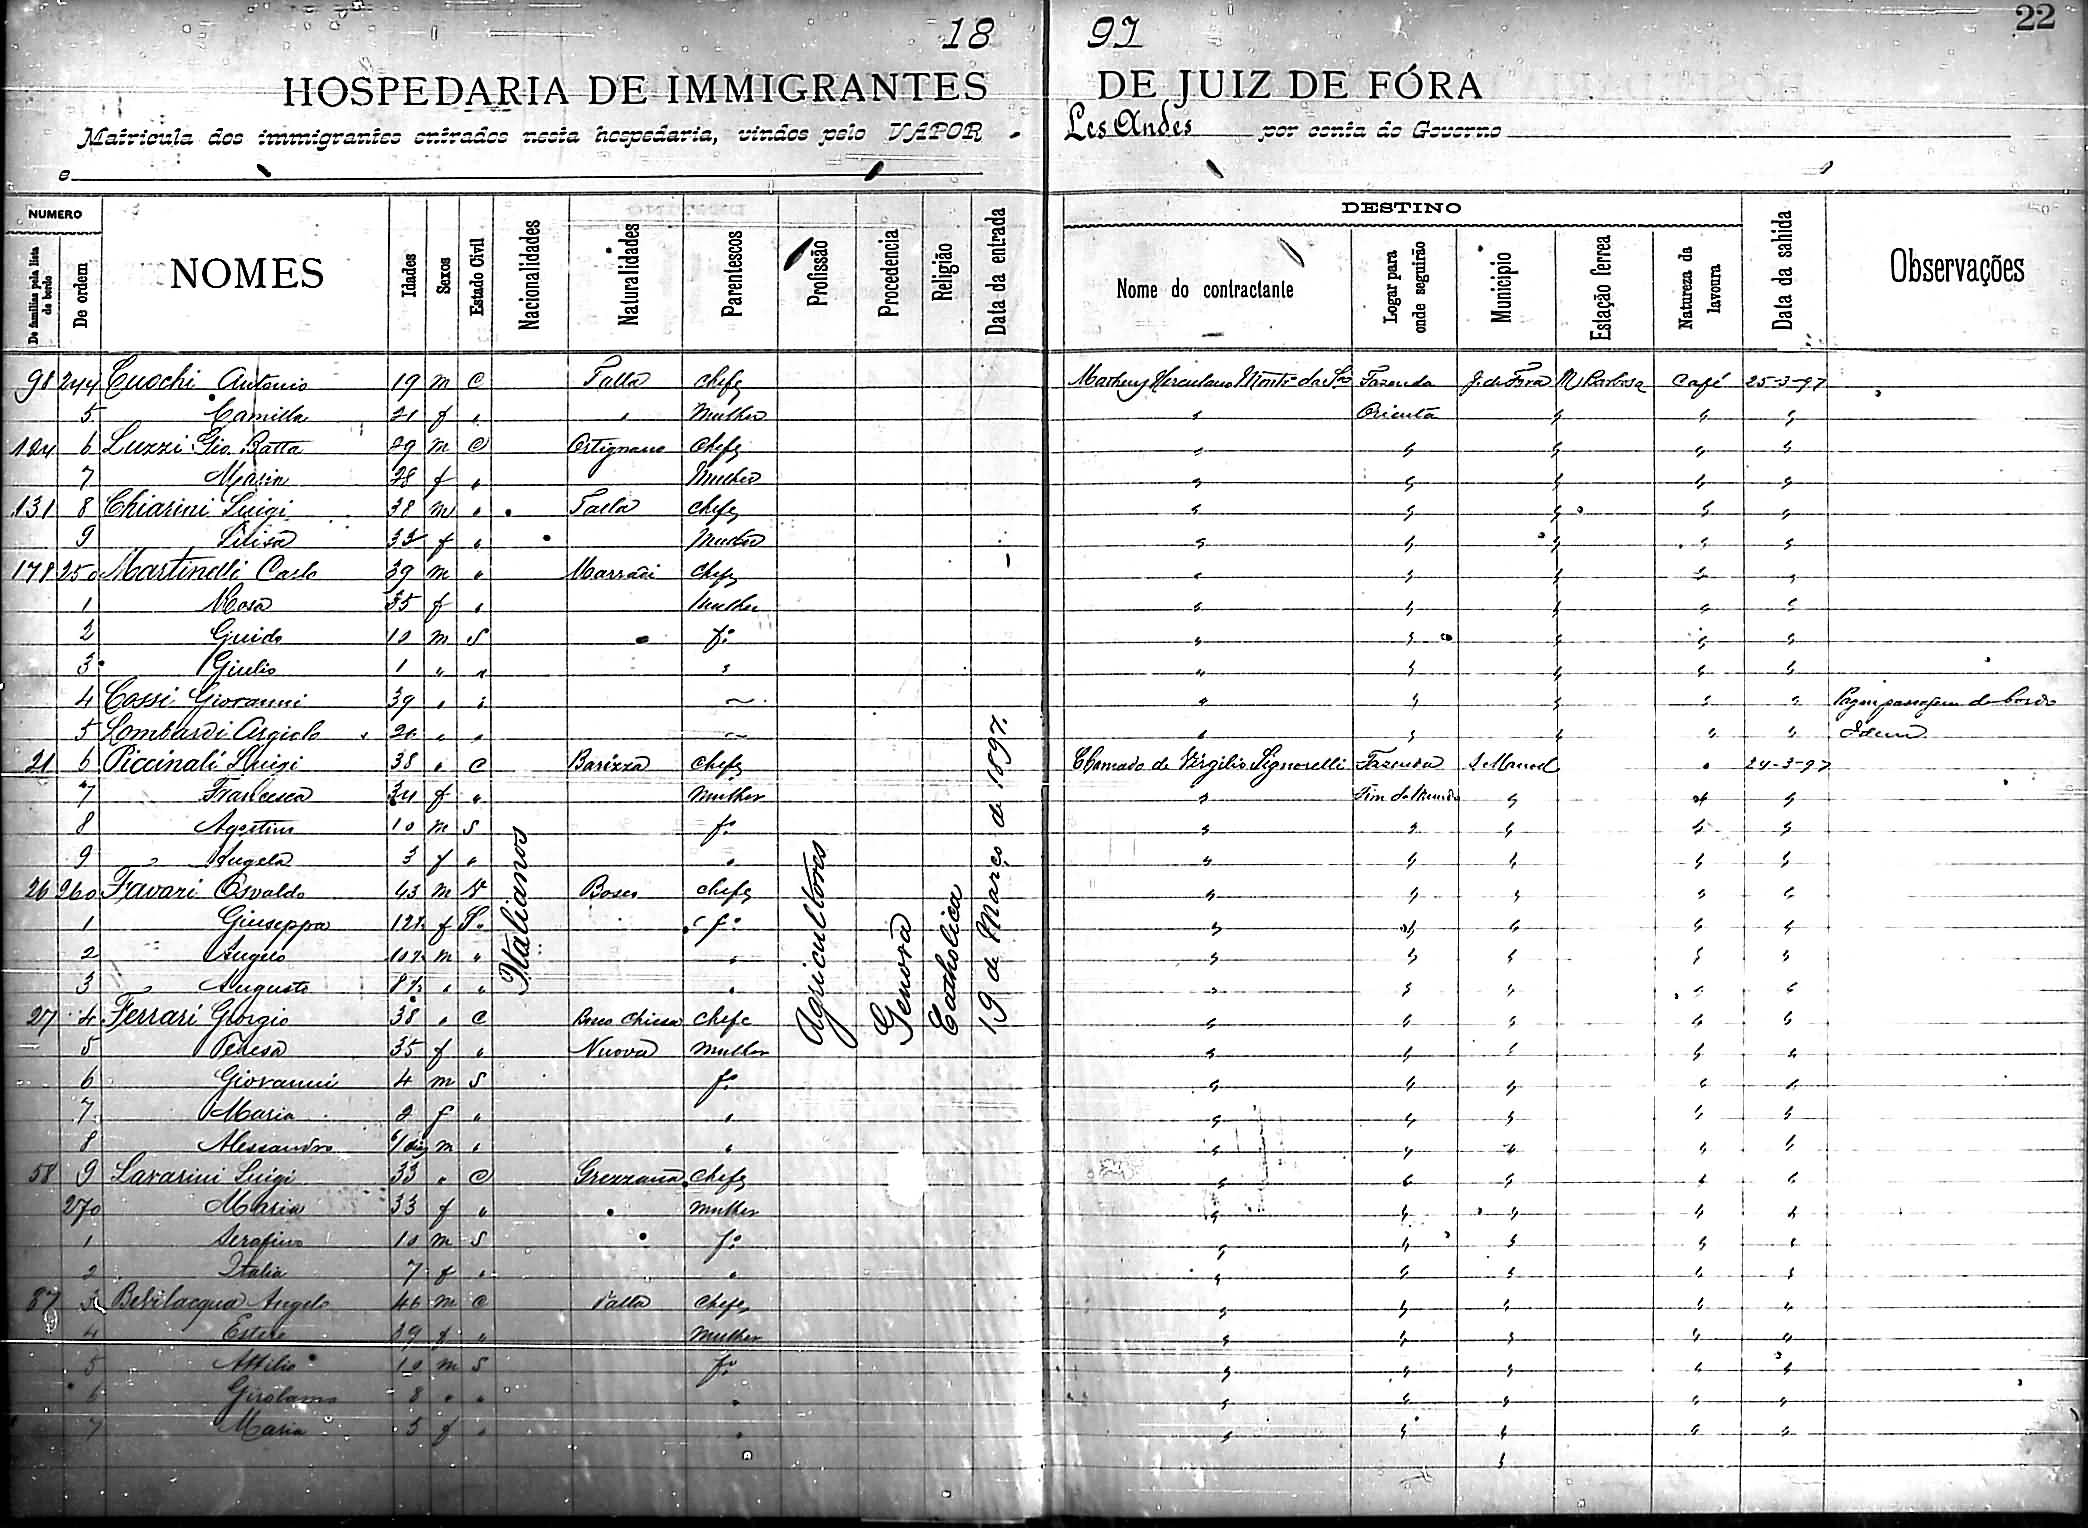 18 97 22
HOSPEDARIA DE IMMIGRANTES DE JUIZ DE FÓRA
Matricula dos immigrantes entrados nesta hospedaria, vindos pelo VAPOR Les Andes por conta do Governo
e
NUMERO DESTINO
De familias pela lista de bordo De ordem NOMES Idades Sexos Estado Civil Nacionalidades Naturalidades Parentescos Profissão Procedencia Religião Data da entrada Nome do contractante Logar para onde seguirão Municipio Estação ferrea Natureza da lavoura Data da sahida Observações
98 244 Cuochi Antonio 19 m C Talla chefe Herculano Monte da Fazenda J. de Fóra M Barbosa Café 25-3-97
5 Camilla 21 f " " Mulher " Orienta " " "
124 6 Luzzi Gio. Batta 29 m C Ortignano Chefe " " " " "
7 Maria 28 f " Mulher " " " " "
131 8 Chiarini Luigi 38 m " Talla chefe " " " " "
9 33 f " Mulher " " " " "
178 250 Martinelli Carlo 39 m " Marradi chefe " " " " "
1 Rosa 35 f " Mulher " " " " "
2 Guido 10 m S fº " " " " "
3 Giulio 1 " " " " " " " "
4 Cossi Giovanni 39 " " ~ " " " " " Pagou passagem de bordo
5 Lombardi " " ~ " " " " " Idem
21 6 Piccinali Luigi 38 " C Barizza chefe Chamado de Virgilio Signorelli Fazenda S. Manoel " 24-3-97
7 Francesca 34 f " Mulher " Fim do Mundo " " "
8 Agostino 10 m S fº " " " " "
9 " Angela 3 f " " " " " " "
26 260 Favari Osvaldo 43 m V Bosco chefe " " " " "
1 Giuseppa 12 f S. fº " " " " "
2 Angelo 10 m " " " " " " "
3 " Augusto 8 " " " " " " " "
27 4 Ferrari Giorgio 38 " C Bosco Chiesa chefe " " " " "
5 Teresa 35 f " Nuova mulher " " " " "
6 Giovanni 4 m S fº " " " " "
7 Maria 2 f " " " " " " "
8 Alessandro m " " " " " " "
58 9 Lavarini Luigi 33 " C Grezzana chefe " " " " "
270 Maria 33 f " mulher " " " " "
1 Serafino 10 m S fº " " " " "
2 Italia 7 f " " " " " " "
87 3 Bevilacqua Angelo 46 m C Talla chefe " " " " "
4 Estere 39 f " mulher " " " " "
5 Attilio 10 m S fº " " " " "
6 Girolamo 8 " " " " " " " "
7 Maria 3 f " " " " " " "
"
Italianos
Agricultores
Genova
Catholica
19 de Março de 1897.